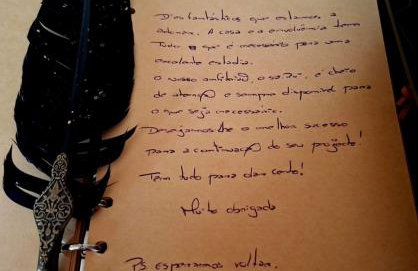 Dias fantásticos que estamos a
adorar. A casa e a envolvência tem
tudo o que é necessário para uma
excelente estadia.
O nosso anfitrião, o é cheio
de atenção e sempre disponível para
o que seja necessário.
Desejamos-lhe o melhor sucesso
para a continuação do seu projecto!
Tem tudo para dar certo!
Muito obrigada
PS esperamos voltar.